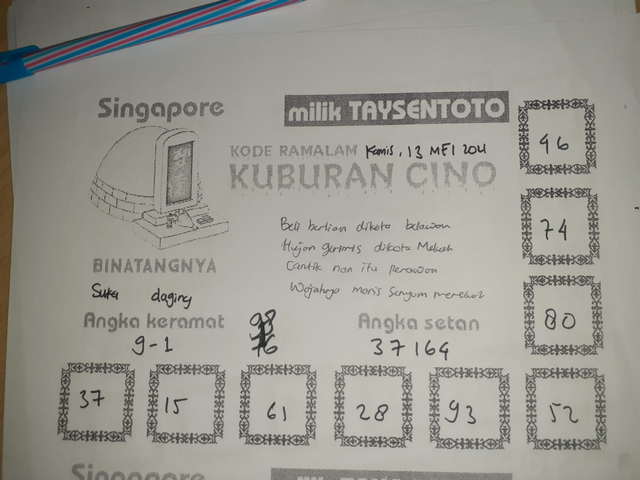 Singapore
milik TAYSENTOTO
KODE RAMALAM Kamis, 13 MEI 2021
KUBURAN CINO
Beli berlian dikota belawan
Hujan gerimis dikota Mekah
Cantik nan itu perawan
Wajahnya manis Senyum merekah
BINATANGNYA
Suka daging
Angka keramat
9-1
98
76
Angka setan
37164
96
74
80
37
15
61
28
93
52
Singapore